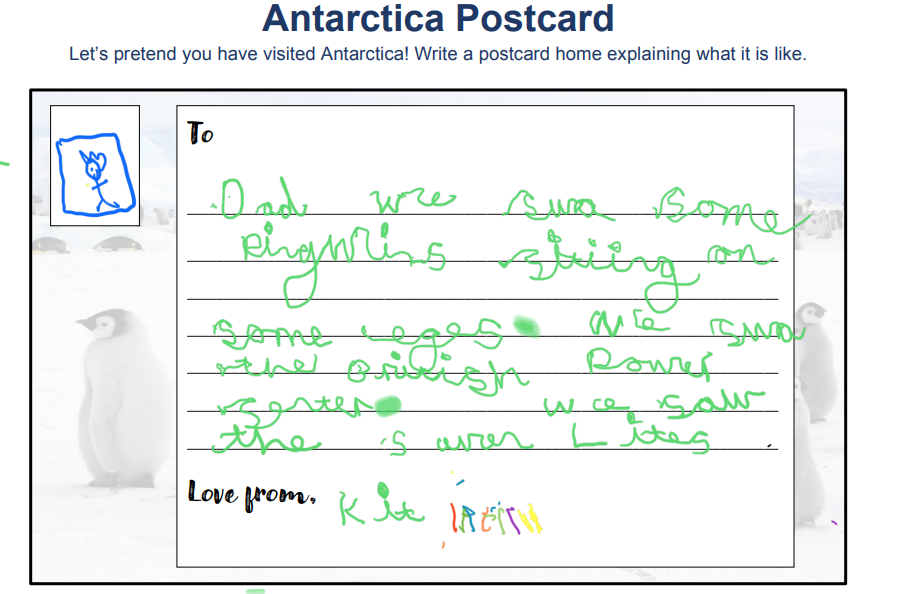 Antarctica Postcard
Let's pretend you have visited Antarctica! Write a postcard home explaining what it is like.
To
Dad we swa some
Pingwins sitiing on
some eges. We swa
the british Power
senter. we saw
the saver Lites.
Love from,
Kit